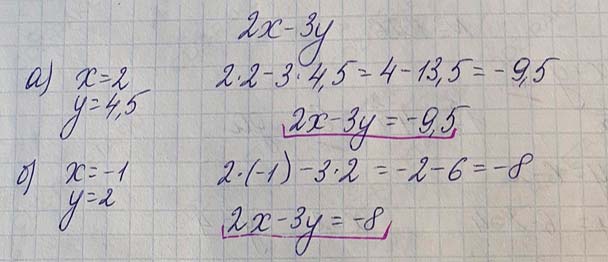 2x-3y
а) x=2 2·2-3·4,5=4-13,5=-9,5
y=4,5
2x-3y=-9,5
б) x=-1 2·(-1)-3·2=-2-6=-8
y=2
2x-3y=-8